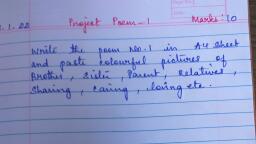 1.1.22 Project Poem-1 Marks: 10
Write the poem No.1 in A4 sheet
and paste colourful pictures of
Brother, Sister, Parent, Relatives,
Sharing, Caring, loving etc.